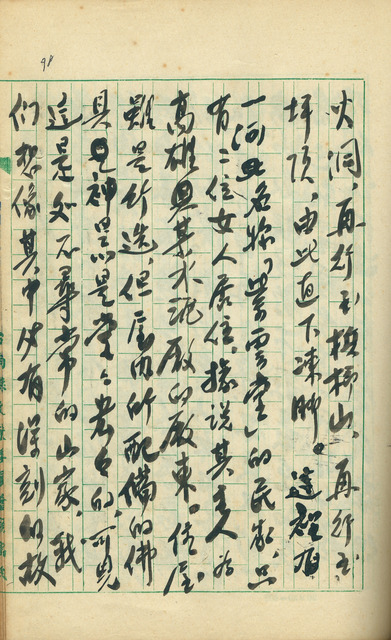 98
火洞，再行至檳榔山，再行至
坪頂，由此直下凍腳。這裡有
一河名称「紫雲堂」的民家，只
有二位女人居住，據說其主人為
高雄某水泥廠的廠東。住屋
雖是竹造，但屋內所配備的佛
具是神是堂々的，可見
這是如不尋常的山家，我
們想像其中必有深刻的故